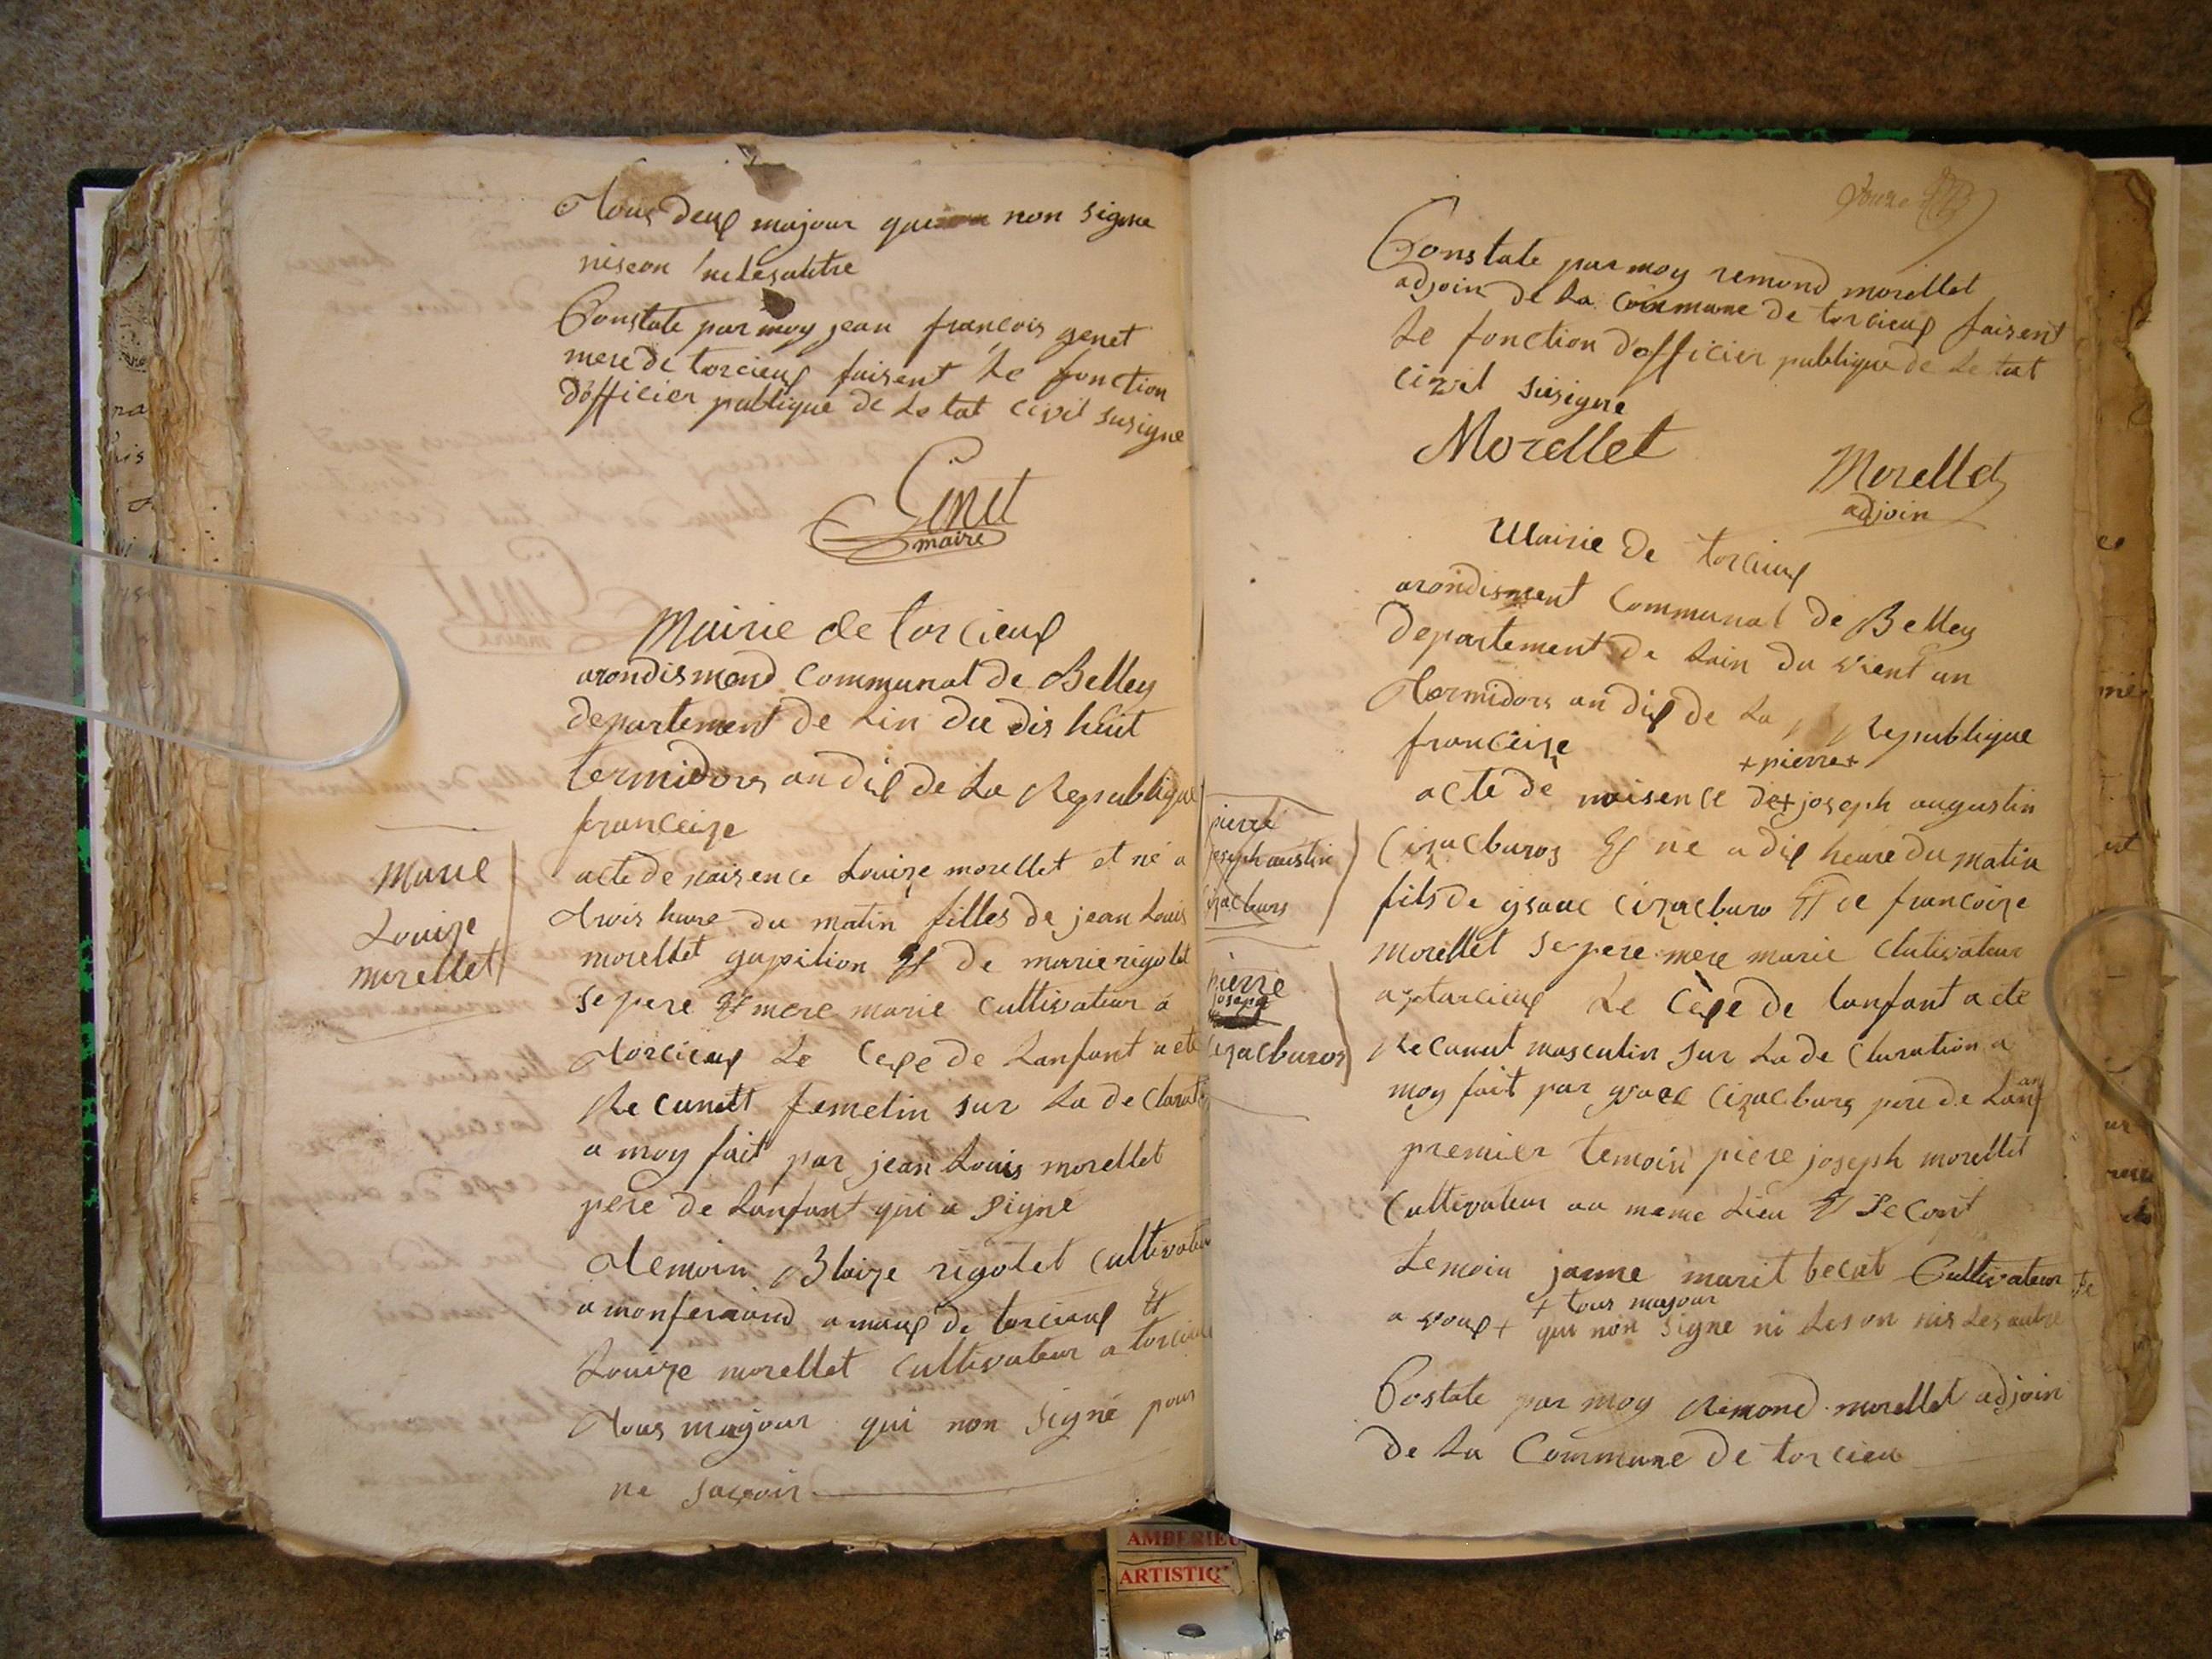 tous deux majour qui non signe
Constate par moy jean françois genet
mere de torcieux faisent le fonction
d'officier publique de le tat civil susigne
Genet
maire
Mairie de torcieux
arondismend Communal de Belley
departement de lin du dis huit
termidors an dix de la Republique
franceize
Marie
Louize
morellet
acte de naisence Louize morellet et né a
trois hure du matin filles de jean Louis
morellet gapilion Et de marie rigolet
se pere Et mere marie cultivateur a
torcieux Le Cexe de Lanfant a ete
Re Cunett femelin sur La de Clarati
a moy fait par jean Louis morellet
pere de Lanfant qui a signe
temoin Blaize rigolet Cultivateu
a monferaand amaux de torcieux Et
Louize morellet Cultivateur a torcieu
tous majour qui non signé pour
ne savoir
Constate par moy remond morellet
adjoin de La Commune de torcieux faisent
Le fonction d'officier publique de Le tat
civil susigne
Morellet
Morellet
adjoin
Mairie de torcieux
arondisment Communal de Belley
Departement de Lain du vient un
termidors an dix de La Republique
franceize
+ pierre +
acte de naisence de + joseph augustin
Cizacburos Et ne a dix heure du matin
fils de ysaac Cizacburo Et de francoize
morellet se pere mere marie Clutivateur
a torcieux Le Cexe de lanfant a ete
Re Cunut masculin sur La de Claration a
moy fait par ysaac Cizacburs pere de Lanf
an
premier temoin piere joseph morellet
Cultivateur au meme Lieu Et Se Cont
temoin janne marit becut Cultivateur
+ tous majour
a vaux + qui non signe ni Leson nis Les autre
Costate par moy Remond morellet adjoin
de La Commune de torcieu
pierre
joseph austin
Cizacburs
pierre
joseph
Cizacburos
AMBERIEU
ARTISTIQ